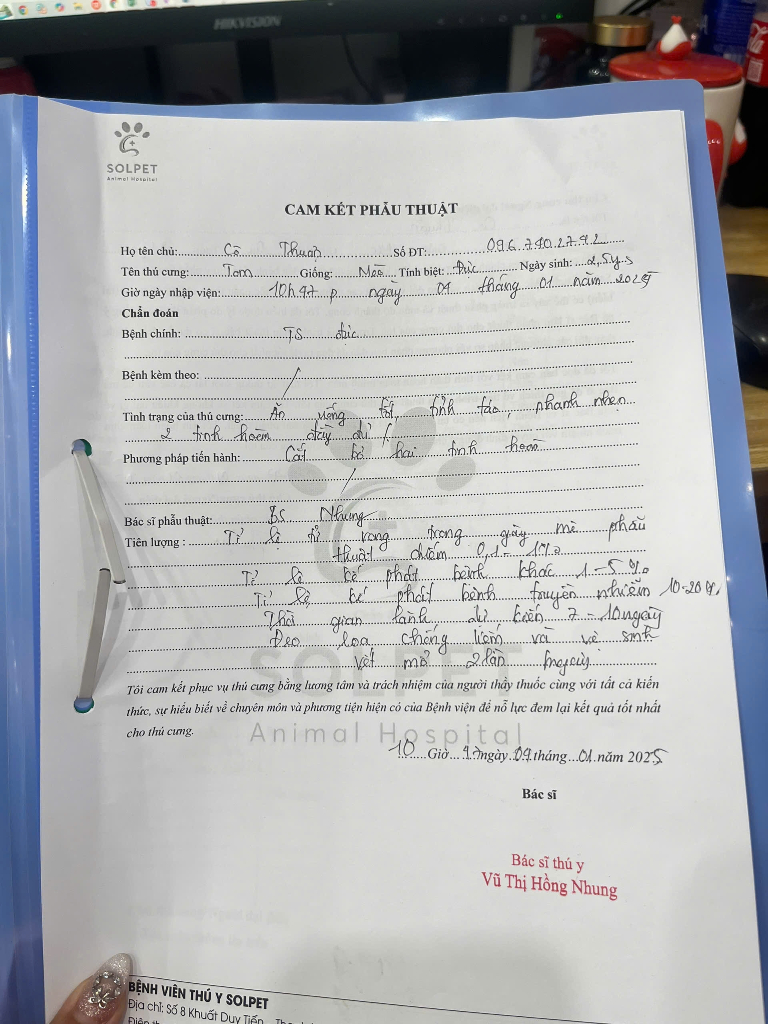 HIKVISION
SOLPET
Animal Hospital
CAM KẾT PHẪU THUẬT
Họ tên chủ: Cô Thuận Số ĐT: 096.740.2792
Tên thú cưng: Tom Giống: Mèo Tính biệt: Đực Ngày sinh: 2,5y.s
Giờ ngày nhập viện: 10h47 p ngày 09 tháng 01 năm 2025
Chẩn đoán
Bệnh chính: TS đực
Bệnh kèm theo: /
Tình trạng của thú cưng: Ăn uống tốt, tỉnh táo, nhanh nhẹn
2 tinh hoàn đầy đủ
Phương pháp tiến hành: Cắt bỏ hai tinh hoàn
/
Bác sĩ phẫu thuật: BS Nhung
Tiên lượng : Tỉ lệ tử vong trong gây mê phẫu
thuật chiếm 0,1 - 1%
Tỉ lệ kế phát bệnh khác 1-5%
Tỉ lệ kế phát bệnh truyền nhiễm 10-20%
Thời gian lành dự kiến 7-10 ngày
Đeo loa chống liếm và vệ sinh
vết mổ 2 lần / ngày
Tôi cam kết phục vụ thú cưng bằng lương tâm và trách nhiệm của người thầy thuốc cùng với tất cả kiến
thức, sự hiểu biết về chuyên môn và phương tiện hiện có của Bệnh viện để nỗ lực đem lại kết quả tốt nhất
cho thú cưng.
SOLPET
Animal Hospital
10 Giờ 47 ngày 09 tháng 01 năm 2025
Bác sĩ
Bác sĩ thú y
Vũ Thị Hồng Nhung
BỆNH VIÊN THÚ Y SOLPET
Địa chỉ: Số 8 Khuất Duy Tiến